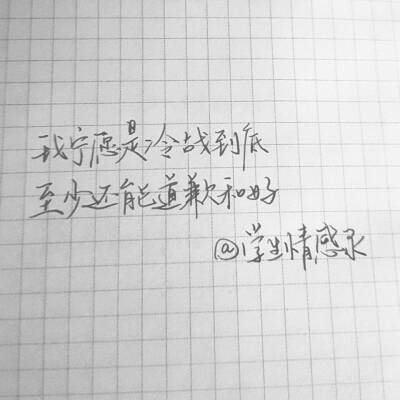 我宁愿是冷战到底
至少还能道歉和好
@学生情感录